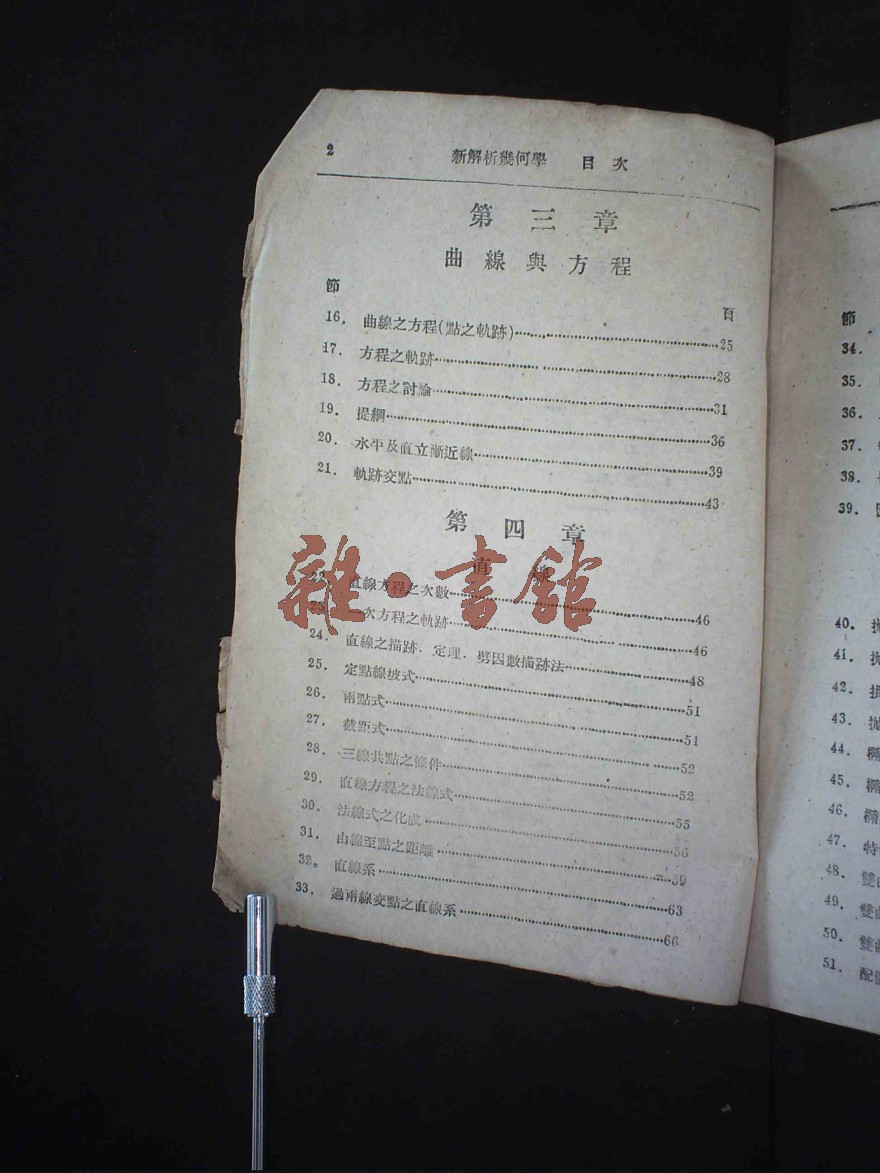 2 新解析幾何學 目次
第三章
曲線與方程
節 頁
16. 曲線之方程(點之軌跡)……25
17. 方程之軌跡……28
18. 方程之討論……31
19. 提綱……36
20. 水平及直立漸近線……39
21. 軌跡交點……43
第四章
直線
22. 直線方程之次數……46
23. 一次方程之軌跡……46
24. 直線之描跡．定理．劈因數描跡法……48
25. 定點線坡式……51
26. 兩點式……51
27. 截距式……52
28. 三線共點之條件……52
29. 直線方程之法線式……55
30. 法線式之化成……56
31. 由線至點之距離……59
32. 直線系……63
33. 過兩線交點之直線系……66
雜·書館
節
34.
35.
36.
37.
38.
39.
40.
41.
42.
43.
44. 橢
45. 橢
46. 橢
47. 特
48. 雙
49. 雙
50. 雙
51. 配